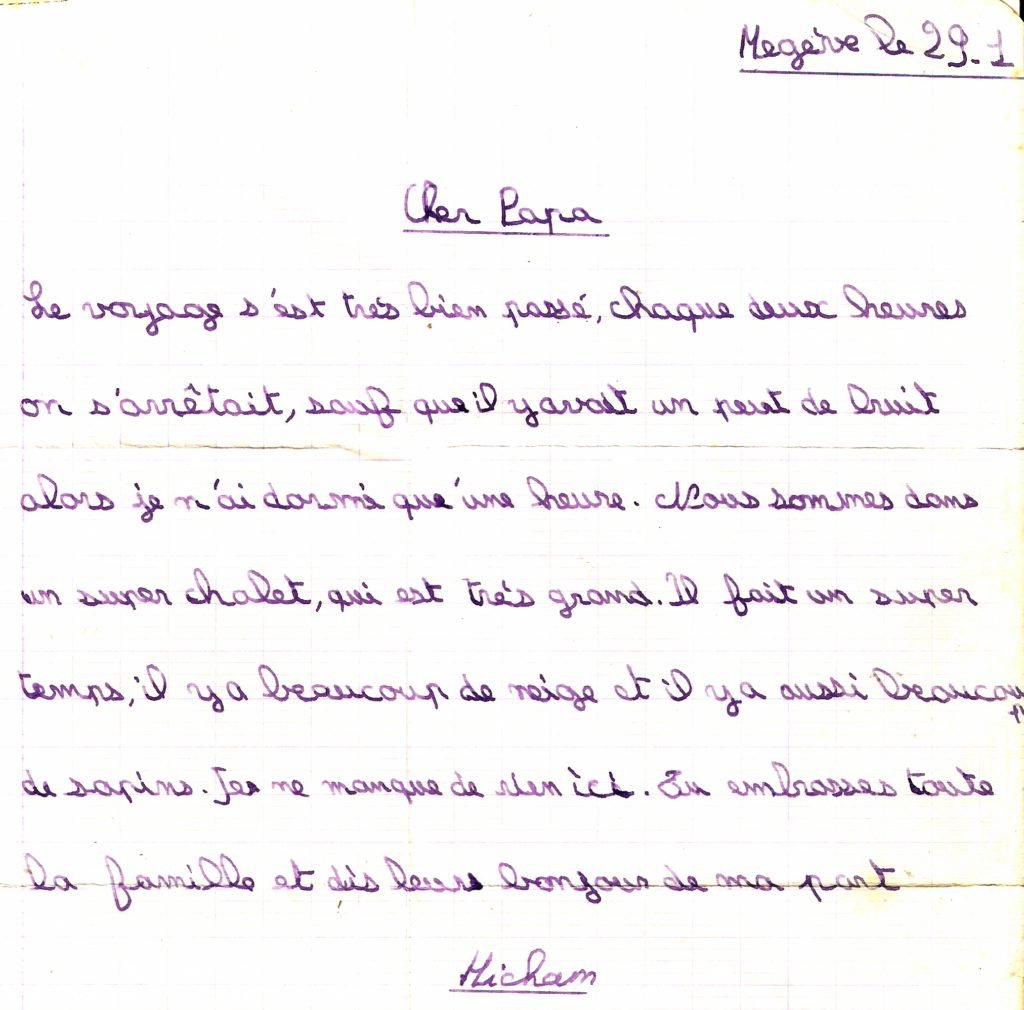 Megève le 29.1
Cher Papa
Le voyage s'est très bien passé, chaque deux heures
on s'arrêtait, sauf que il y avait un peut de bruit
alors je n'ai dormé que'une heure. Nous sommes dans
un super chalet, qui est très grand. Il fait un super
temps, il y a beaucoup de neige et il y a aussi beaucoup
de sapins. Je ne manque de rien ici. Tu embrasses toute
la famille et dis leurs bonjour de ma part
Hicham